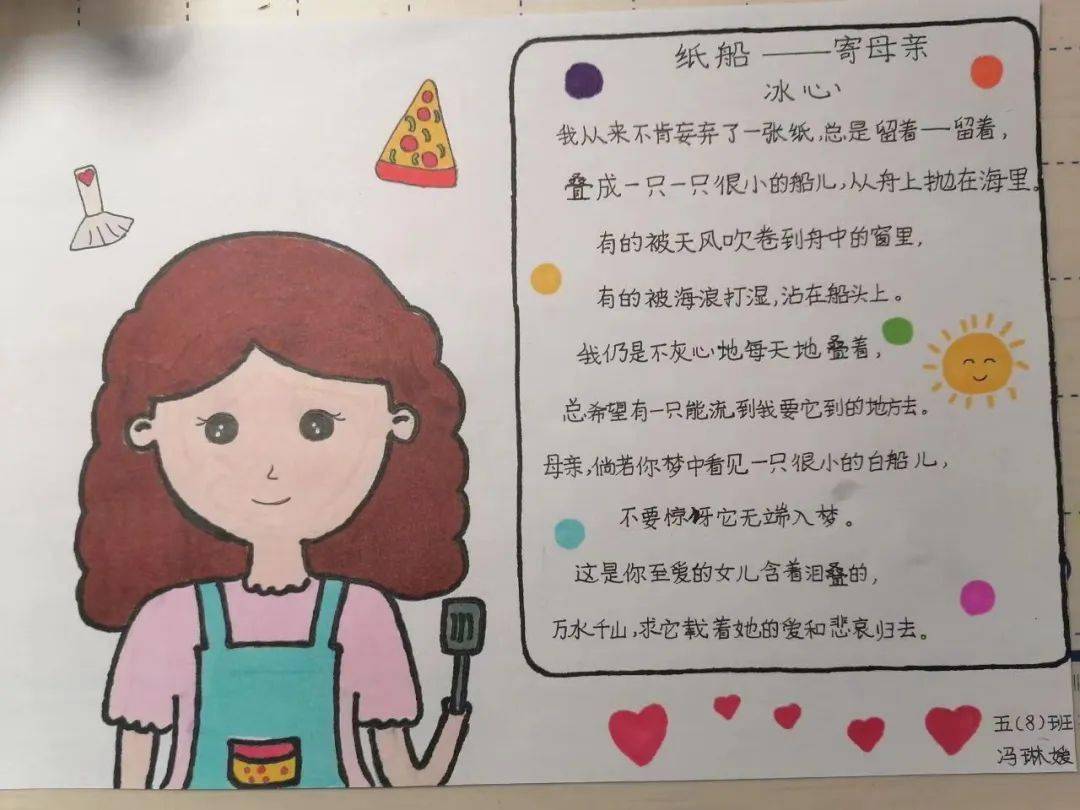 纸船——寄母亲
冰心
我从来不肯妄弃了一张纸,总是留着一留着,
叠成一只一只很小的船儿,从舟上抛在海里。
有的被天风吹卷到舟中的窗里,
有的被海浪打湿,沾在船头上。
我仍是不灰心地每天地叠着,
总希望有一只能流到我要它到的地方去。
母亲,倘若你梦中看见一只很小的白船儿,
不要惊讶它无端入梦。
这是你至爱的女儿含着泪叠的,
万水千山,求它载着她的爱和悲哀归去。
五(8)班
冯琳嫒